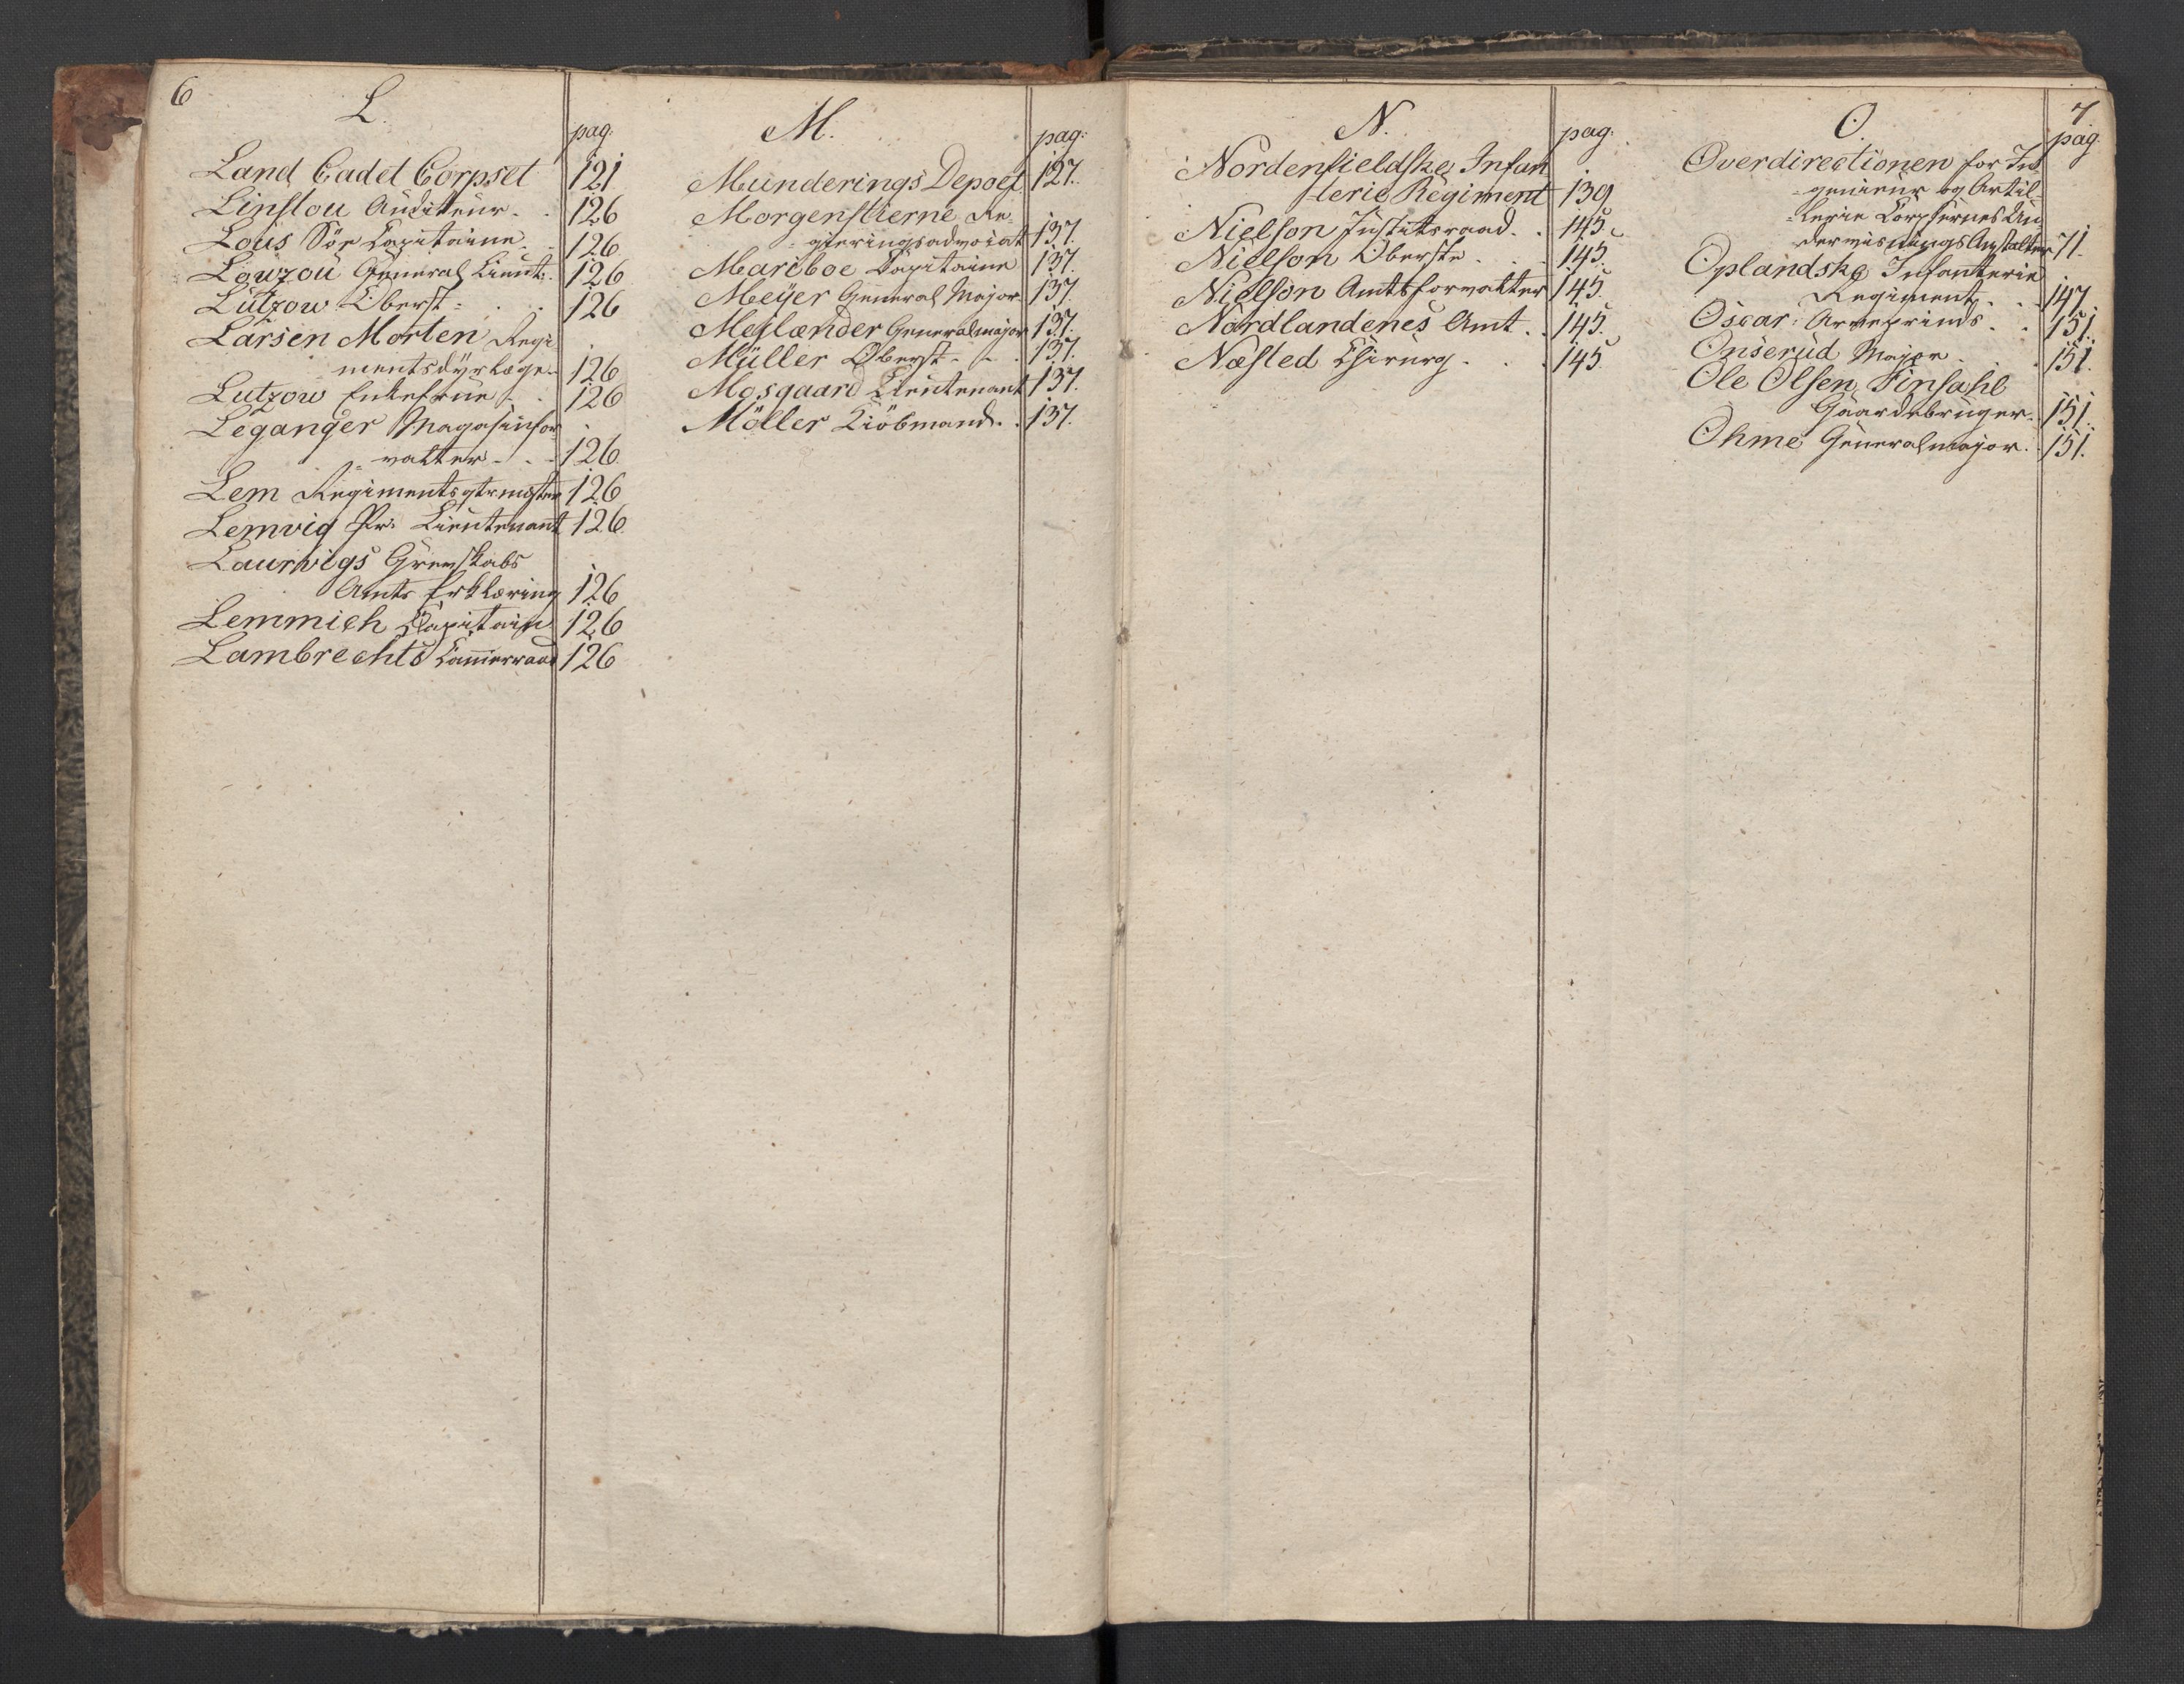 6
L.
pag:
Land Cadet Corpset 121
Linstou Auditeur. . 126
Lous Söe Capitaine. . 126
Lowzou General Lieut: . 126
Lützow Oberst- . . 126
Larsen Morten Regi
mentsdÿrlæge. 126
Lutzow Enkefrue . . 126
Leganger Magasinfor
=valter . . . 126.
Lem Regimentsqtrmester 126
Lemvig Pr: Lieutenant 126.
Laurvigs Grevskabs
Amts Erklæring 126
Lemmich Capitain 126
Lambrechts Cammerraad 126
M.
pag:
Munderings Depoet 127.
Morgenstierne Re
=gieringsadvocat 137.
Mariboe Capitaine 137.
Meÿer General Major 137.
Meÿlænder Generalmajor 137.
Müller Oberst - . . 137.
Mosgaard Lieutenant 137.
Möller Kiöbmand. . 137.
N.
pag:
Nordenfieldske Infan
terie Regiment 139
Nielson Justitsraad. . 145.
Nielson Oberste . . . 145.
Nielson Amtsforvalter 145.
Nordlandenes Amt . . 145.
Næsted Chirurg . . . 145.
7
O.
pag
Overdirectionen for In
=genieur og Artil=
=lerie Corpsernes Un
derviisnings Anstalter 71.
Oplandske Infanterie
Regiment . . . 147.
Oscar: Arveprinds . . 151.
Onserud Major . . . 151.
Ole Olsen Finsahl
Gaardebruger. 151.
Ohme Generalmajor. . 151.